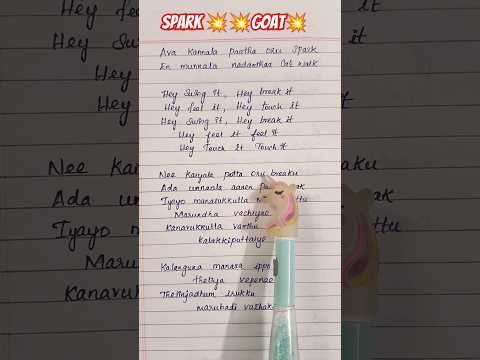 SPARK 💥💥GOAT💥
Ava Kannala paatha oru Spark
En munnala nadanthaa Cat walk
Hey Swing it, Hey break it
Hey feel it, Hey touch it
Hey Swing it, Hey break it
Hey feel it feel it
Hey Touch it Touch it
Nee Kaiyale potta oru breaku
Ada unnanla aanen
Iyayo manasukkulla
Marundha vechiyee
Kanavukkulla vanthu
Kalakkiputtaiye
Kalanguna manasa ippo
Theliya vepenee
Thelinjadhum irukku
marubadi vazhak